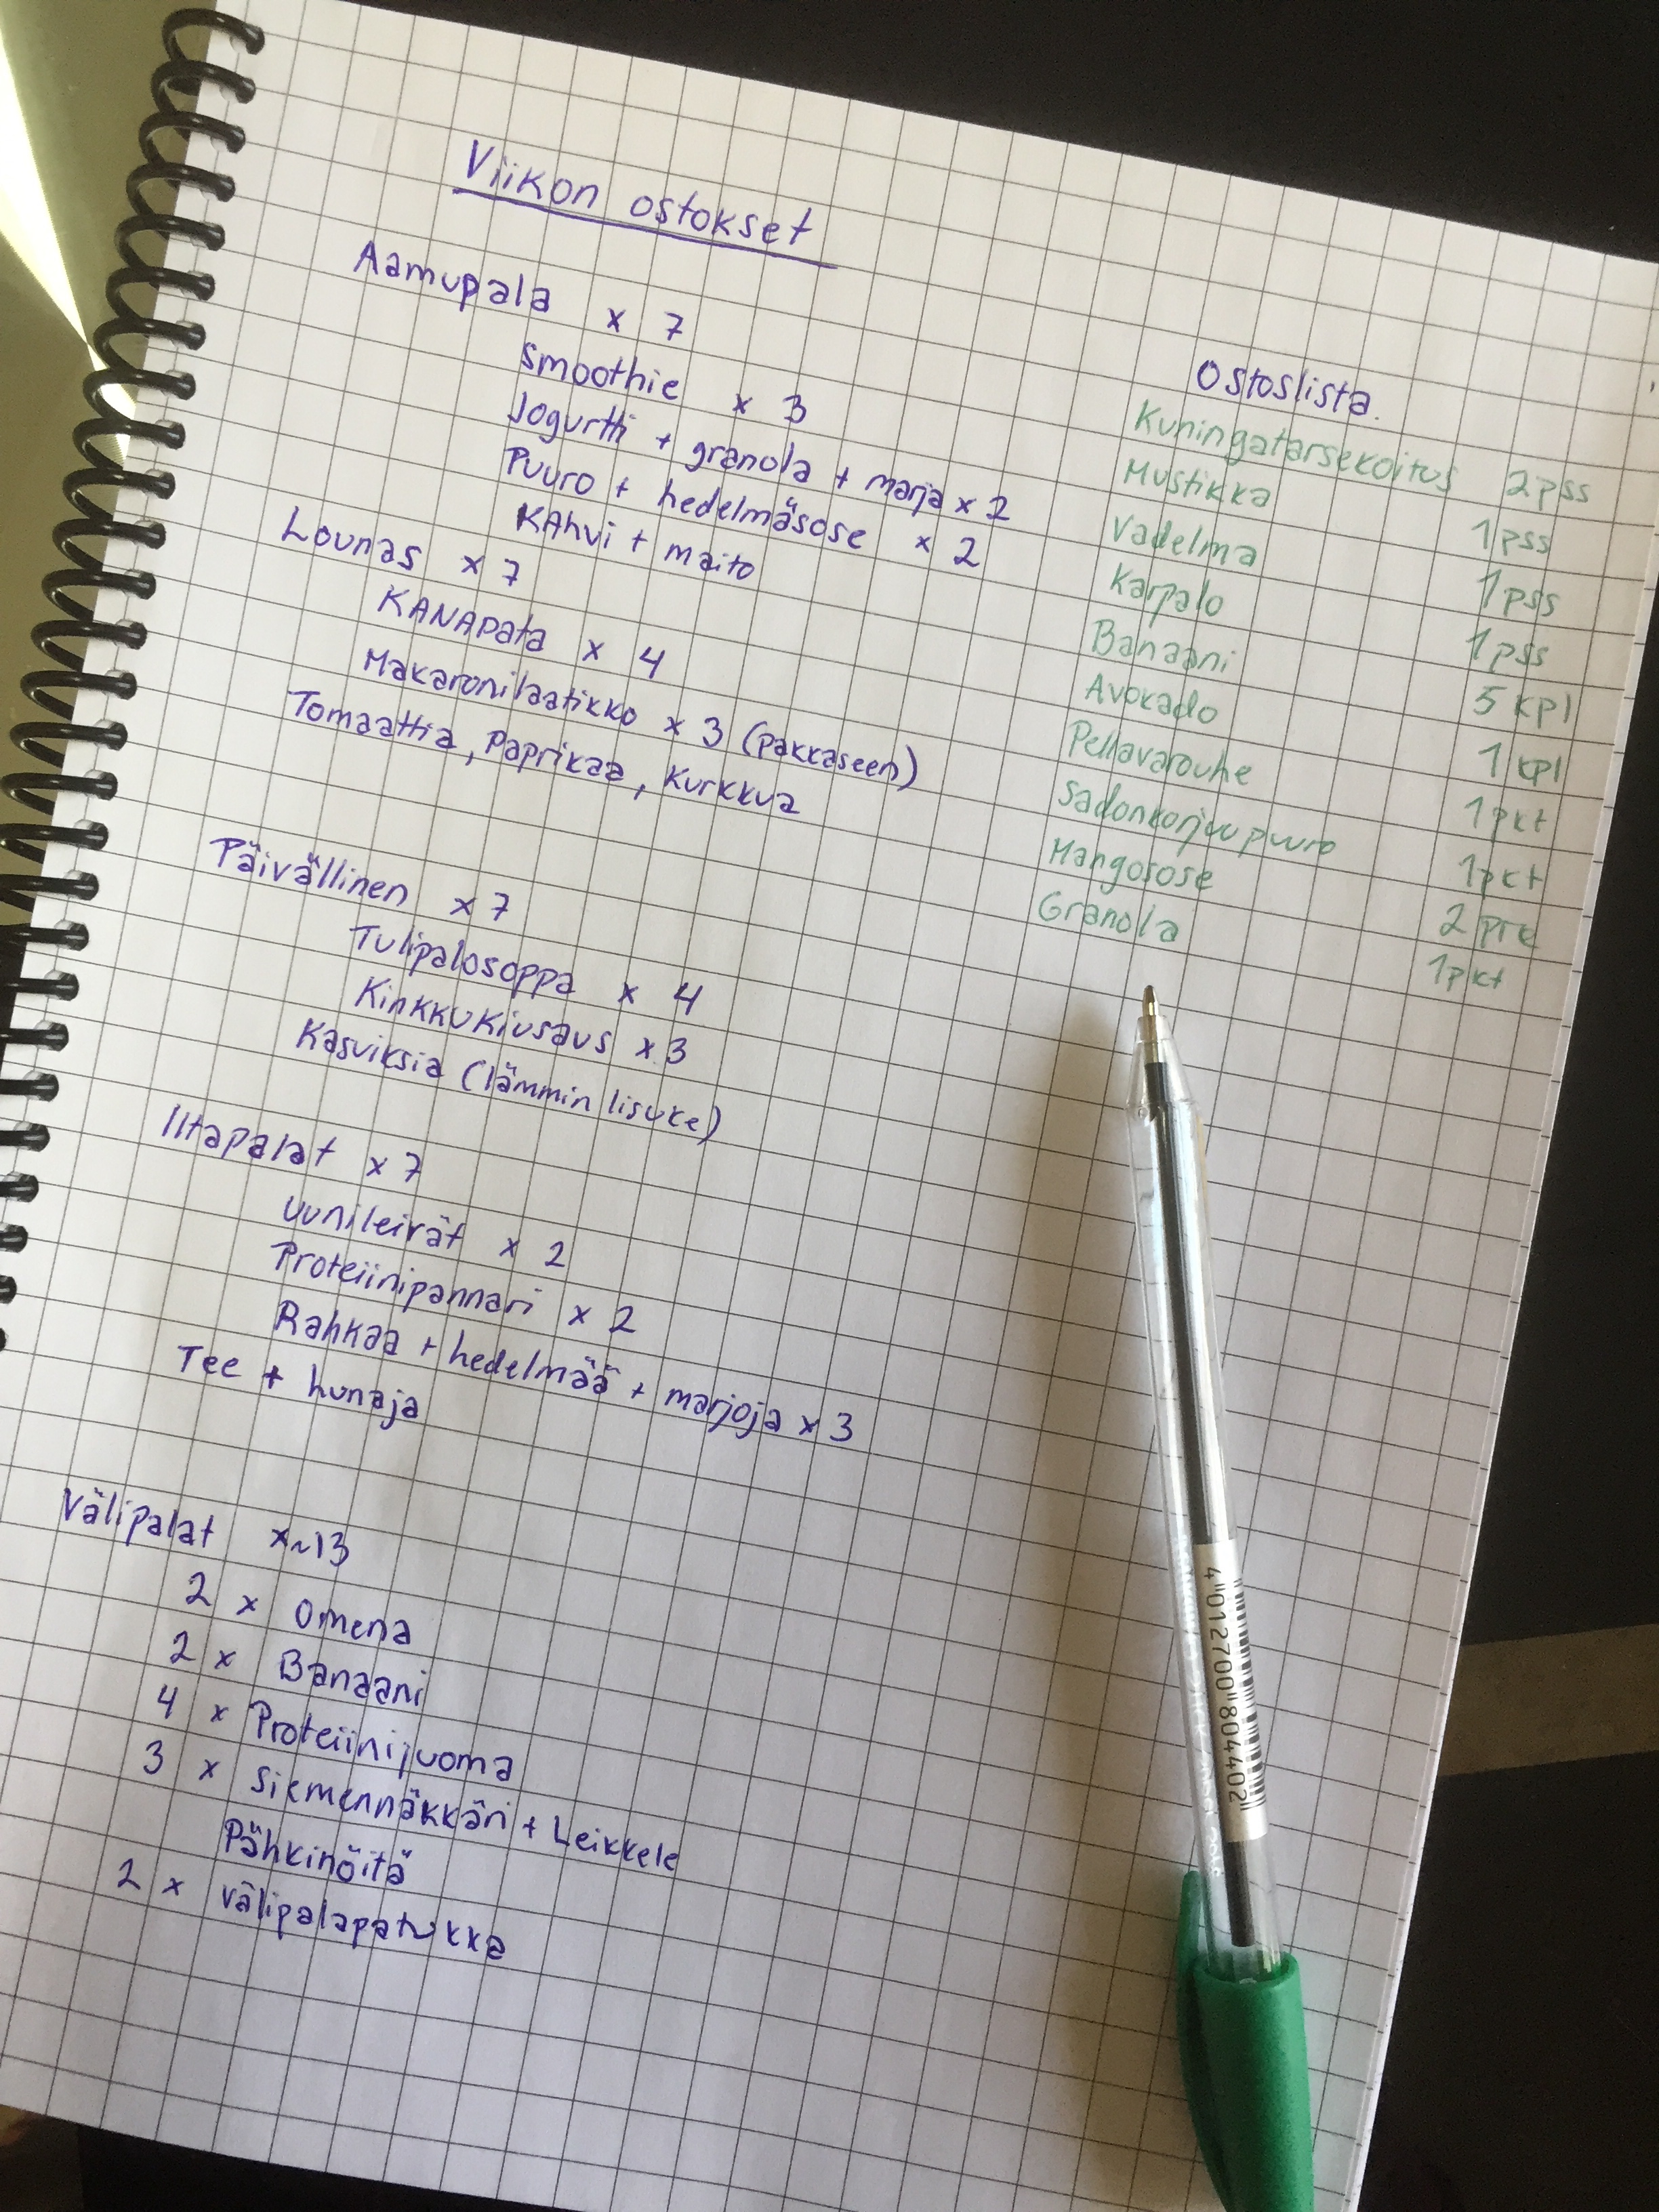 Viikon ostokset
Aamupala x 7
smoothie x 3
Jogurtti + granola + marja x 2
Puuro + hedelmäsose x 2
KAhvi + maito
Lounas x 7
KANApata x 4
Makaronilaatikko x 3 (pakkaseen)
Tomaattia, Paprikaa, Kurkkua
Päivällinen x 7
Tulipalosoppa x 4
Kinkkukiusaus x 3
Kasviksia (lämmin lisuke)
Iltapalat x 7
uunileivät x 2
Proteiinipannari x 2
Rahkaa + hedelmää + marjoja x 3
Tee + hunaja
Välipalat x ~13
2 x omena
2 x Banaani
4 x Proteiinijuoma
3 x siemennäkkäri + Leikkele
Pähkinöitä
2 x välipalapatukka
Ostoslista.
Kuningatarsekoitus 2 pss
Mustikka 1 pss
Vadelma 1 pss
Karpalo 1 pss
Banaani 5 kpl
Avokado 1 kpl
Pellavarouhe 1 pkt
Sadonkorjuupuuro 1 pkt
Mangosose 2 prk
Granola 1 pkt
4"012700"804402